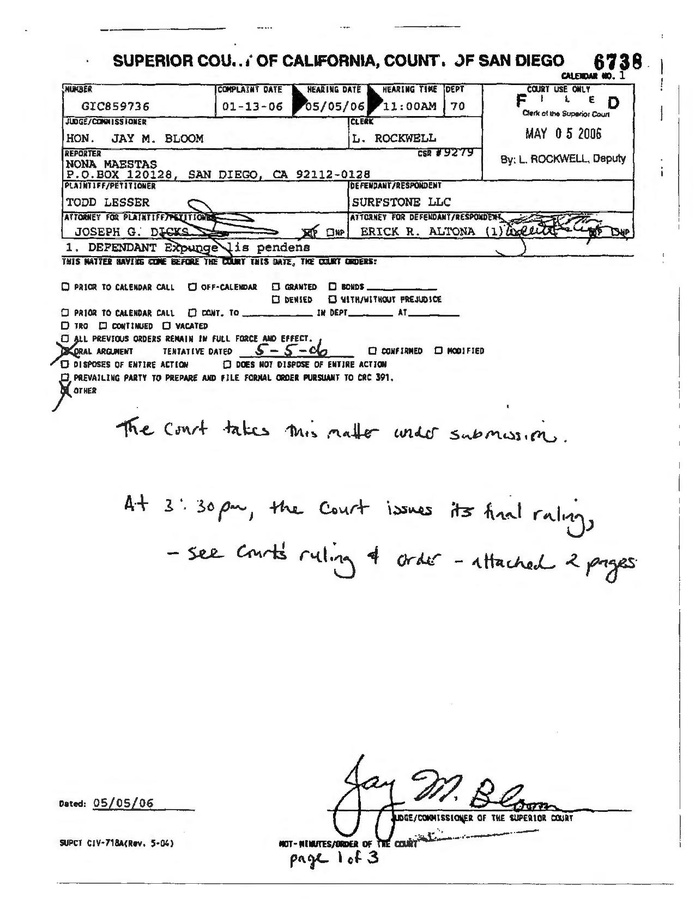 SUPERIOR COU... OF CALIFORNIA, COUNT. OF SAN DIEGO 6738
CALENDAR NO. 1
NUMBER COMPLAINT DATE HEARING DATE HEARING TIME DEPT COURT USE ONLY
GIC859736 01-13-06 05/05/06 11:00AM 70 F I L E D
Clerk of the Superior Court
JUDGE/COMMISSIONER CLERK
HON. JAY M. BLOOM L. ROCKWELL MAY 05 2006
REPORTER CSR #9279
NONA MAESTAS By: L. ROCKWELL, Deputy
P.O.BOX 120128, SAN DIEGO, CA 92112-0128
PLAINTIFF/PETITIONER DEFENDANT/RESPONDENT
TODD LESSER SURFSTONE LLC
ATTORNEY FOR PLAINTIFF/PETITIONER ATTORNEY FOR DEFENDANT/RESPONDENT
JOSEPH G. DICKS P NP ERICK R. ALTONA (1) P NP
1. DEFENDANT Expunge lis pendens
THIS MATTER HAVING COME BEFORE THE COURT THIS DATE, THE COURT ORDERS:
☐ PRIOR TO CALENDAR CALL ☐ OFF-CALENDAR ☐ GRANTED ☐ BONDS
☐ DENIED ☐ WITH/WITHOUT PREJUDICE
☐ PRIOR TO CALENDAR CALL ☐ CONT. TO IN DEPT AT
☐ TRO ☐ CONTINUED ☐ VACATED
☐ ALL PREVIOUS ORDERS REMAIN IN FULL FORCE AND EFFECT.
☒ ORAL ARGUMENT TENTATIVE DATED 5-5-06 ☐ CONFIRMED ☐ MODIFIED
☐ DISPOSES OF ENTIRE ACTION ☐ DOES NOT DISPOSE OF ENTIRE ACTION
☐ PREVAILING PARTY TO PREPARE AND FILE FORMAL ORDER PURSUANT TO CRC 391.
☒ OTHER
The Court takes this matter under submission.
At 3:30pm, the Court issues its final ruling,
- see Court's ruling & order - attached 2 pages
Jay M. Bloom
Dated: 05/05/06
JUDGE/COMMISSIONER OF THE SUPERIOR COURT
SUPCT CIV-718A(Rev. 5-04) MOT-MINUTES/ORDER OF THE COURT
page 1 of 3